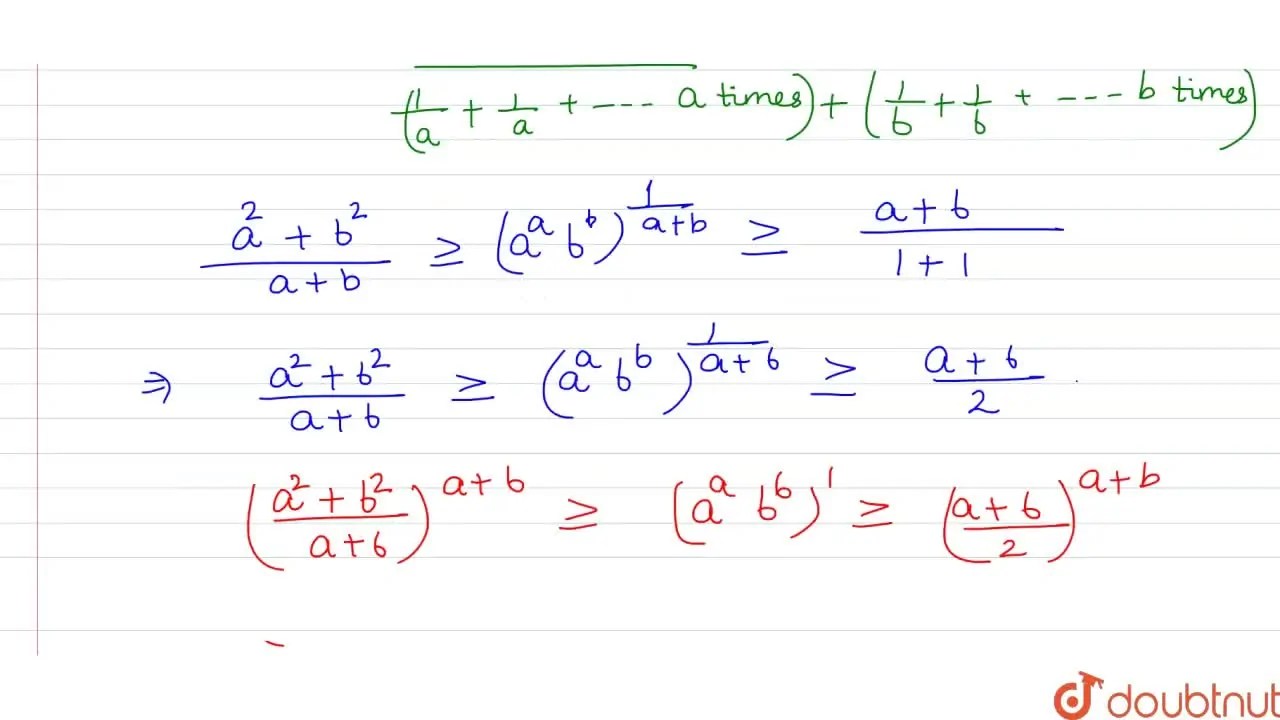 (1/a + 1/a + --- a times) + (1/b + 1/b + --- b times)
(a² + b²)/(a + b) ≥ (aᵃ bᵇ)^(1/(a+b)) ≥ (a + b)/(1 + 1)
⇒ (a² + b²)/(a + b) ≥ (aᵃ bᵇ)^(1/(a+b)) ≥ (a + b)/2
((a² + b²)/(a + b))^(a+b) ≥ (aᵃ bᵇ)^1 ≥ ((a + b)/2)^(a+b)
doubtnut